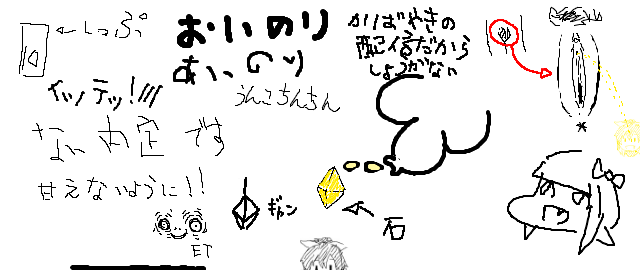 ←しっぷ
おいのり
おいのり
かばやきの
配信だから
しょうがない
イッテッ!!!
うんこちんちん
ない内定です
甘えないように!!
ギャン
石
ET